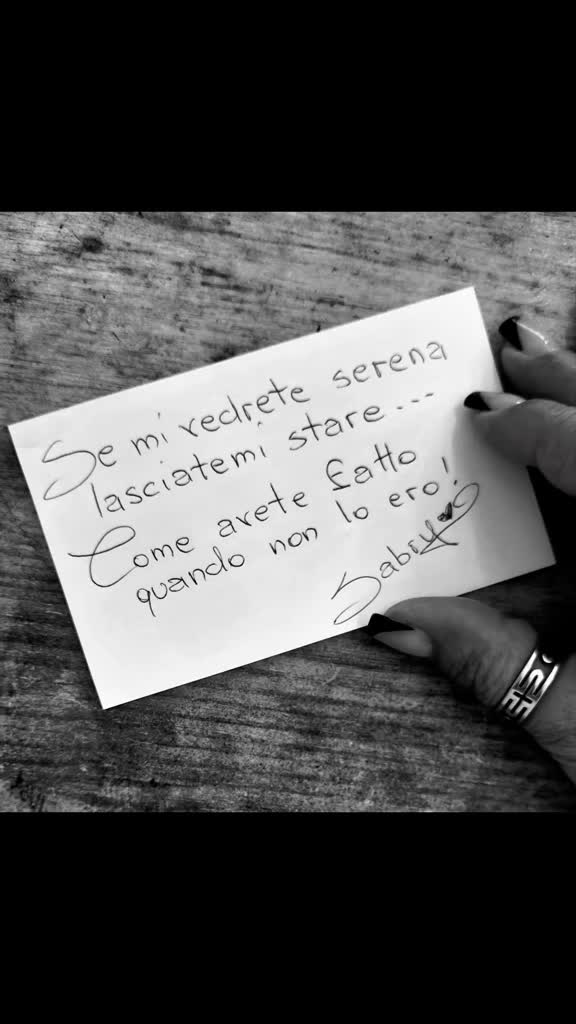 Se mi vedrete serena
lasciatemi stare...
Come avete fatto
quando non lo ero!
Sabry